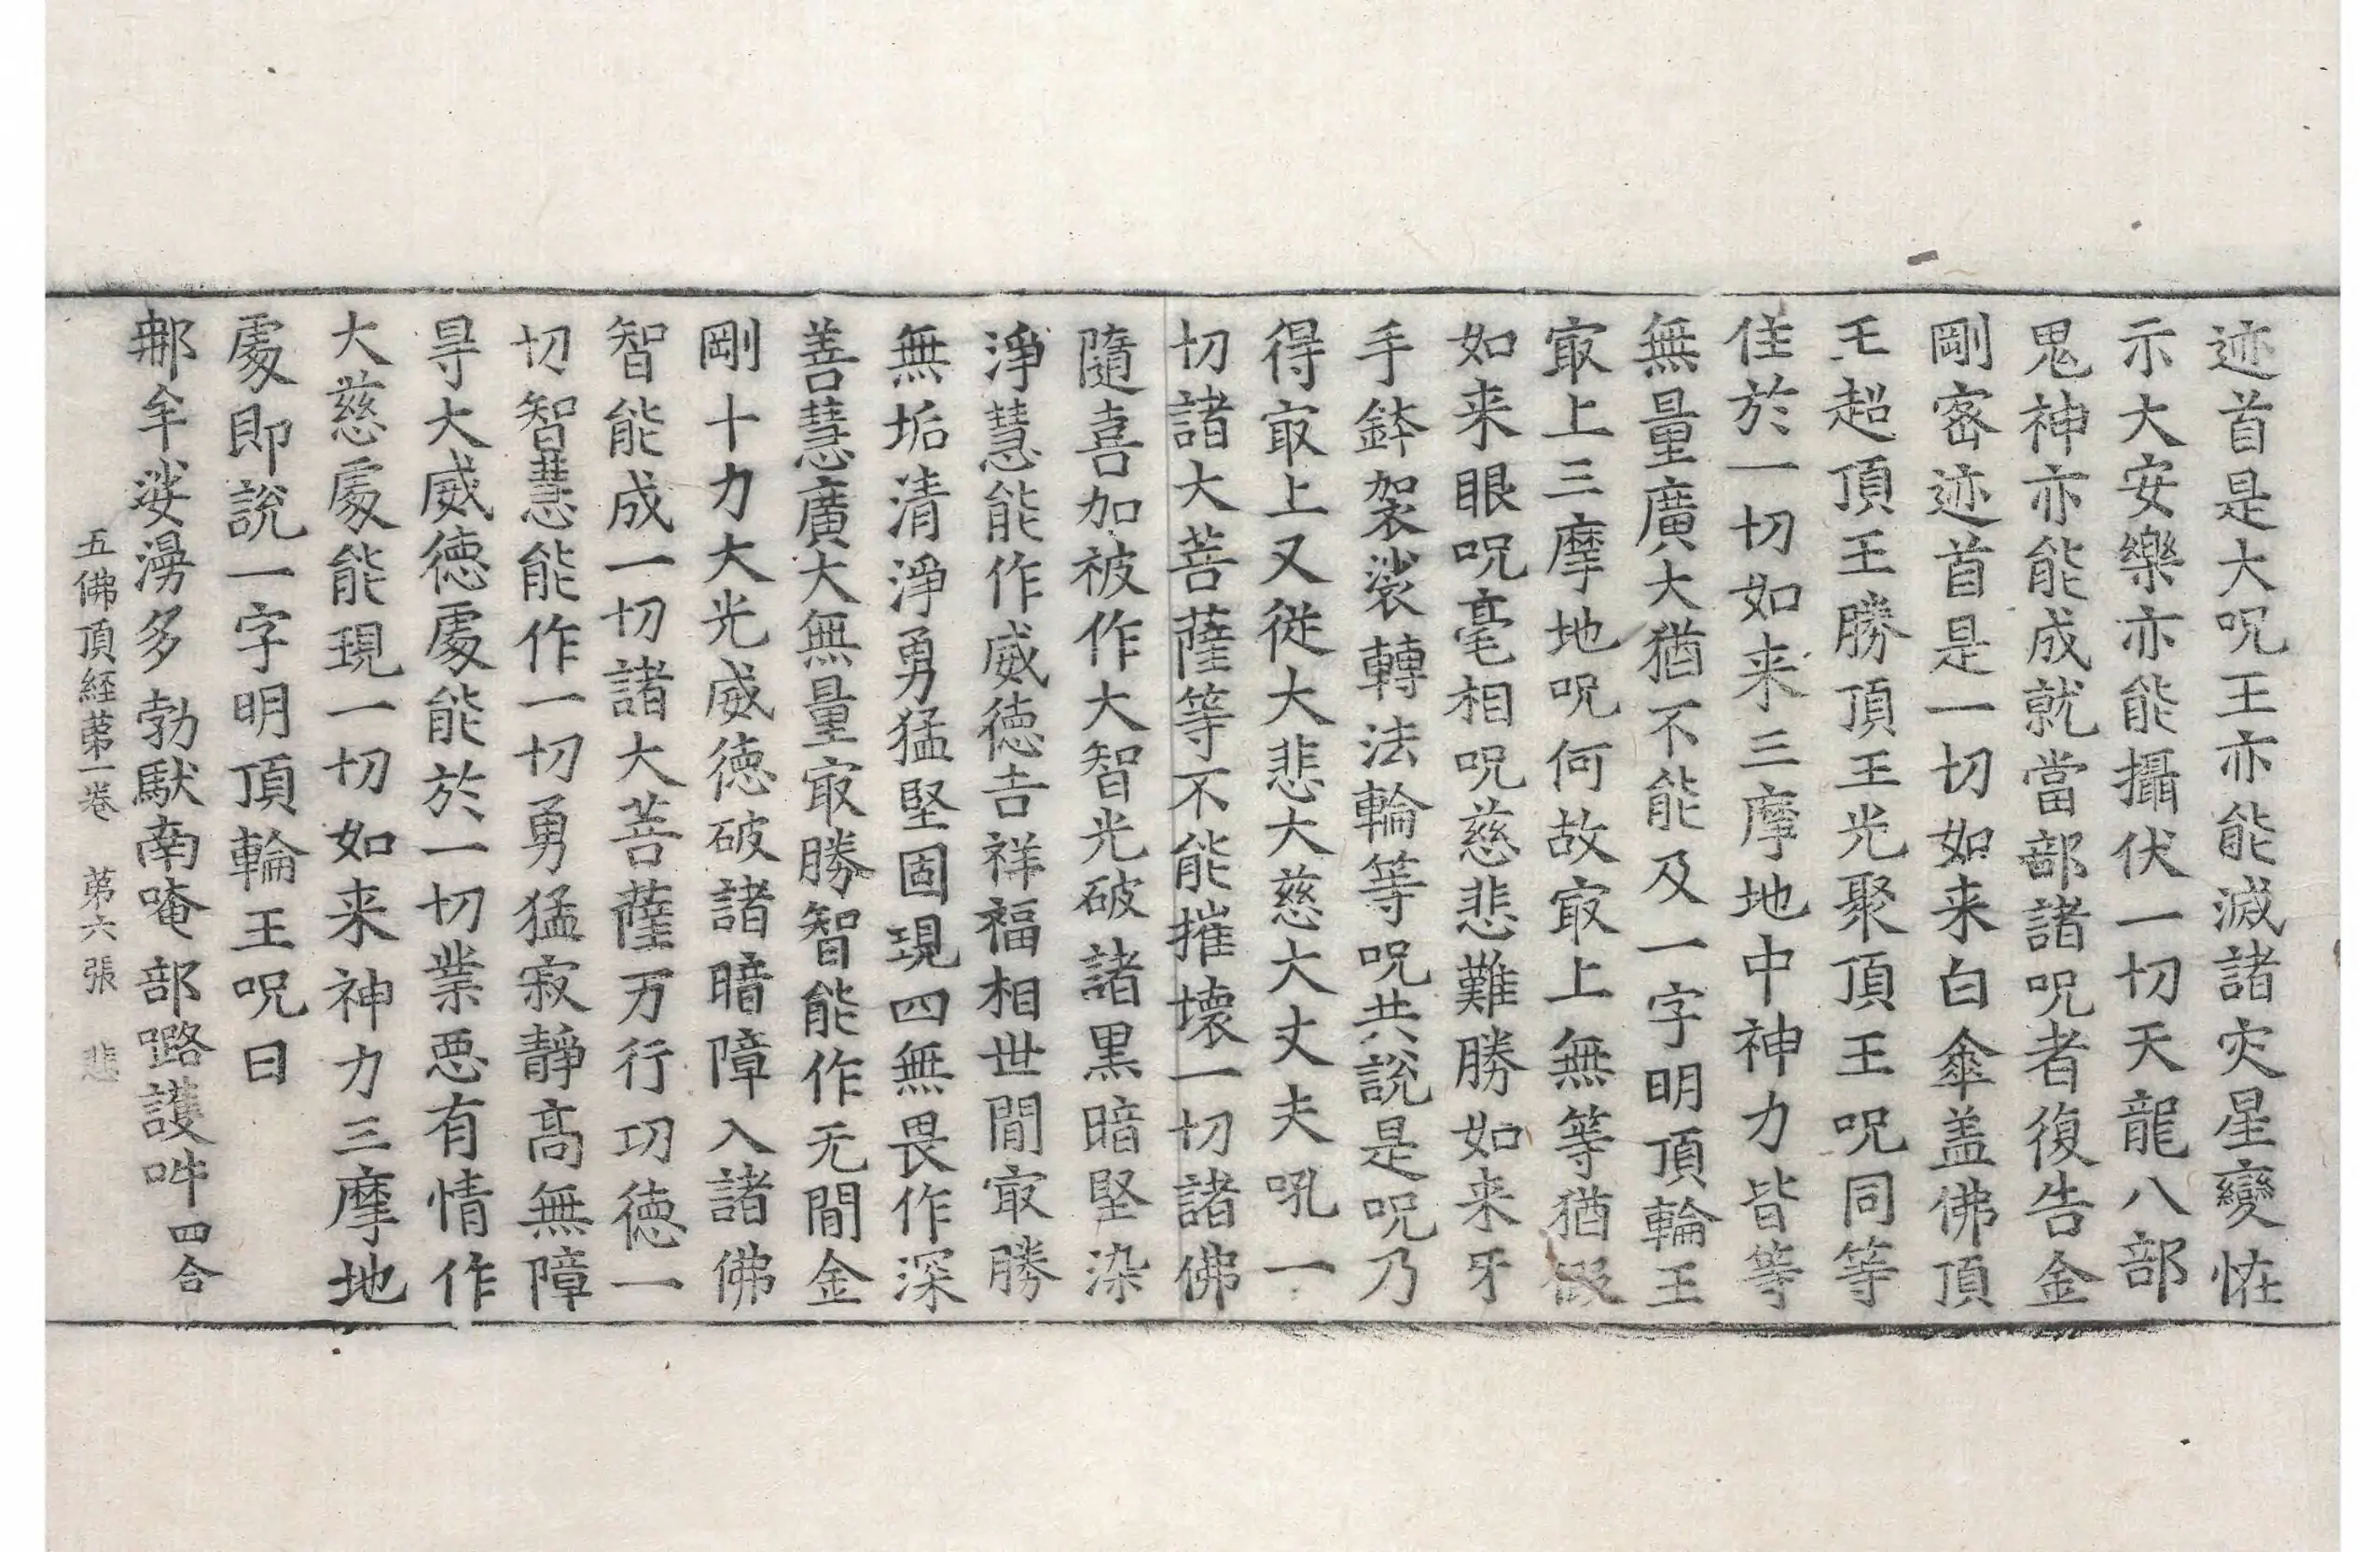 迹首是大呪王亦能滅諸灾星變恠
示大安樂亦能攝伏一切天龍八部
鬼神亦能成就當部諸呪者復告金
剛密迹首是一切如来白傘盖佛頂
王超頂王勝頂王光聚頂王呪同等
住於一切如来三摩地中神力皆等
無量廣大猶不能及一字明頂輪王
冣上三摩地呪何故冣上無等猶假
如来眼呪毫相呪慈悲難勝如来牙
手鉢袈裟轉法輪等呪共說是呪乃
得冣上又従大悲大慈大丈夫吼一
切諸大菩薩等不能摧壊一切諸佛
隨喜加被作大智光破諸黒暗堅染
淨慧能作威徳吉祥福相世閒冣勝
無垢清淨勇猛堅固現四無畏作深
善慧廣大無量冣勝智能作无閒金
剛十力大光威徳破諸暗障入諸佛
智能成一切諸大菩薩万行功徳一
切智慧能作一切勇猛寂靜髙無障
㝵大威徳䖏能於一切業悪有情作
大慈䖏能現一切如来神力三摩地
䖏即說一字明頂輪王呪曰
那牟娑湯多勃馱南唵部嚕護吽四合
五佛頂経苐一卷 苐六張 悲